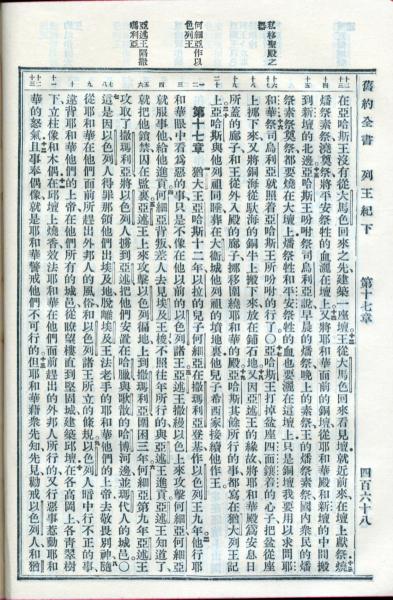 舊約全書 列王紀下 第十七章 四百六十八
私移聖殿之器
在亞哈斯王沒有從大馬色回來之先建築一座壇王從大馬色回來看見壇就近前來在壇上獻祭燒
燔祭素祭澆奠祭將平安祭牲的血灑在壇上又將耶和華面前的銅壇從耶和華殿和新壇的中間搬
到新壇的北邊亞哈斯王吩咐祭司烏利亞說早晨的燔祭晚上的素祭王的燔祭素祭國內衆民的燔
祭素祭奠祭都要燒在大壇上燔祭牲和平安祭牲的血也要灑在這壇上只是銅壇我要用以求問耶
和華祭司烏利亞就照着亞哈斯王所吩咐的行了〇亞哈斯王打掉盆座四面鑲着的心子把盆從座
上挪下來又將銅海從馱海的銅牛上搬下來放在鋪石地又因亞述王的緣故將耶和華殿爲安息日
所蓋的廊子和王從外入殿的廊子挪移圍繞耶和華的殿亞哈斯其餘所行的事都寫在猶大列王記
上亞哈斯與他列祖同睡葬在大衛城他列祖的墳地裏他兒子希西家接續他作王
何細亞作以色列王
第十七章 猶大王亞哈斯十二年以拉的兒子何細亞在撒瑪利亞登基作以色列王九年他行耶
和華眼中看爲惡的事只是不像在他以前的以色列諸王亞述王撒縵以色上來攻擊何細亞何細亞
就服事他給他進貢何細亞背叛差人去見埃及王梭不照往年所行的與亞述王進貢亞述王知道了
亞述王陷撒瑪利亞
就把他鎖禁囚在監裏亞述王上來攻擊以色列徧地上到撒瑪利亞圍困三年何細亞第九年亞述王
攻取了撒瑪利亞將以色列人擄到亞述把他們安置在哈臘與歌散的哈博河邊並瑪代人的城邑〇
這是因以色列人得罪那領他們出埃及地脫離埃及王法老手的耶和華他們的上帝去敬畏別神隨
從耶和華在他們面前所趕出外邦人的風俗和以色列諸王所立的條規以色列人暗中行不正的事
違背耶和華他們的上帝在他們所有的城邑從瞭望樓直到堅固城建築邱壇在各高岡上各青翠樹
下立柱像和木偶在邱壇上燒香效法耶和華在他們面前趕出的外邦人所行的又行惡事惹動耶和
華的怒氣且事奉偶像就是耶和華警戒他們不可行的但耶和華藉衆先知先見勸戒以色列人和猶